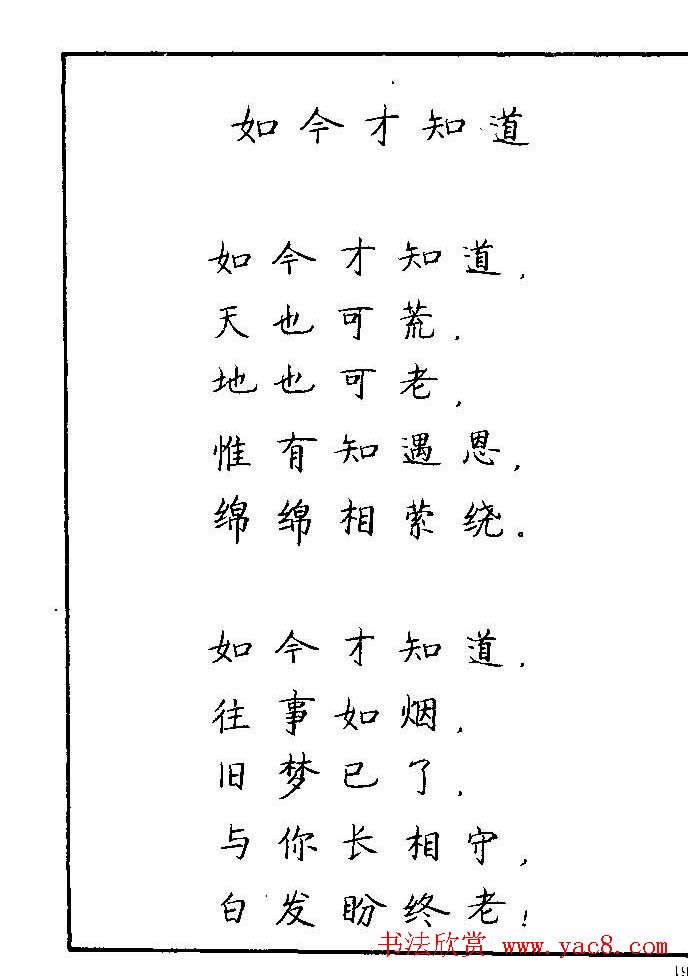 如今才知道
如今才知道，
天也可荒，
地也可老，
惟有知遇恩，
绵绵相萦绕。
如今才知道，
往事如烟，
旧梦已了，
与你长相守，
白发盼终老！
书法欣赏 www.yac8.com